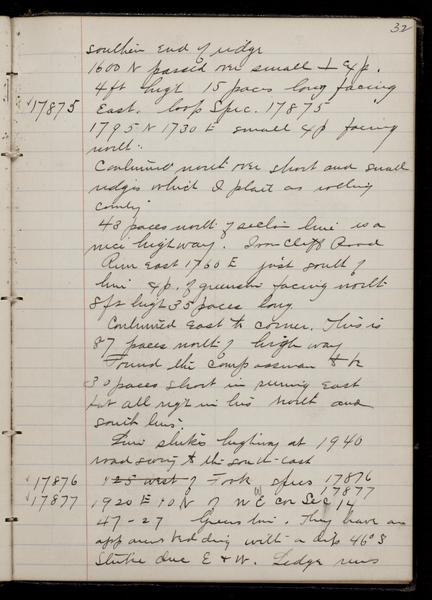 32
southern end of ridge
1600 N passed over small exp.
4ft high 15 paces long facing
17875 East. Spec. 17875
1795 N 1730 E small exp facing
north.
Continued north over short and small
ridges which I plait as rolling
country
43 paces north of section line is a
nice highway. Iron Cliff Road
Run East 1760 E just south of
line exp. of greenstone facing north
8ft high 35 paces long
Continued East to corner. This is
87 paces north of high way
Found the compassman to be
30 paces short in running East
but all right in his north and
south lines.
Line strikes highway at 1940
road swings to the south-east
17876 125 west of Took specs 17876
17877 17877
1920 E + 0 N of NE cor Sec 14
47-27 Greens line. They have an
apparent bedding with a dip 46° S
Strike due E + W. Ledge runs